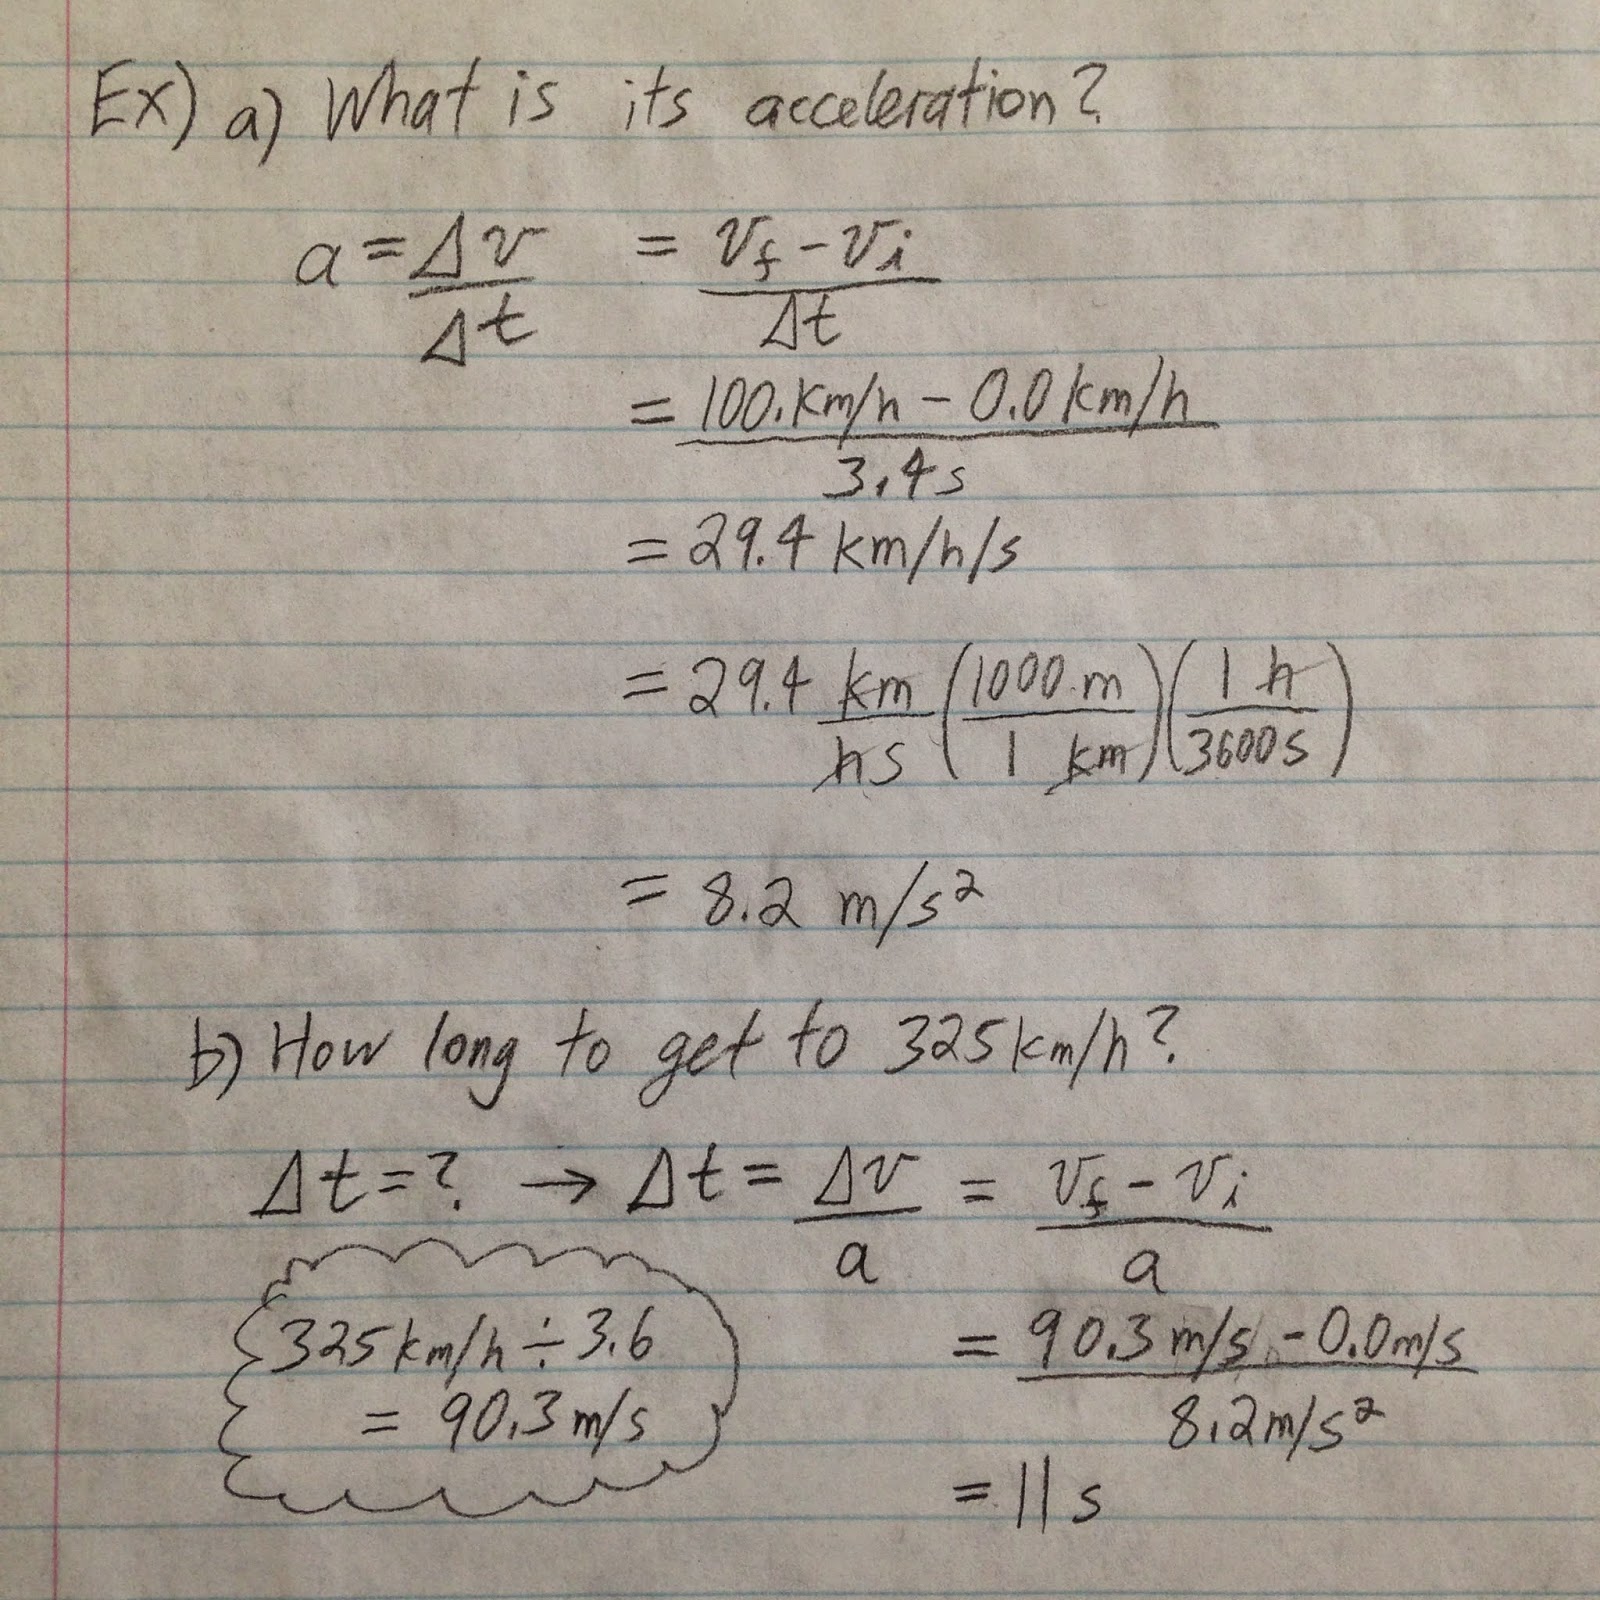 Ex) a) What is its acceleration?
a = Δv/Δt = (v_f - v_i)/Δt
= (100. km/h - 0.0 km/h)/3.4s
= 29.4 km/h/s
= 29.4 km/hs (1000 m/1 km)(1 h/3600s)
= 8.2 m/s²
b) How long to get to 325 km/h?
Δt = ? → Δt = Δv/a = (v_f - v_i)/a
325 km/h ÷ 3.6
= 90.3 m/s
= (90.3 m/s - 0.0 m/s)/8.2 m/s²
= 11 s